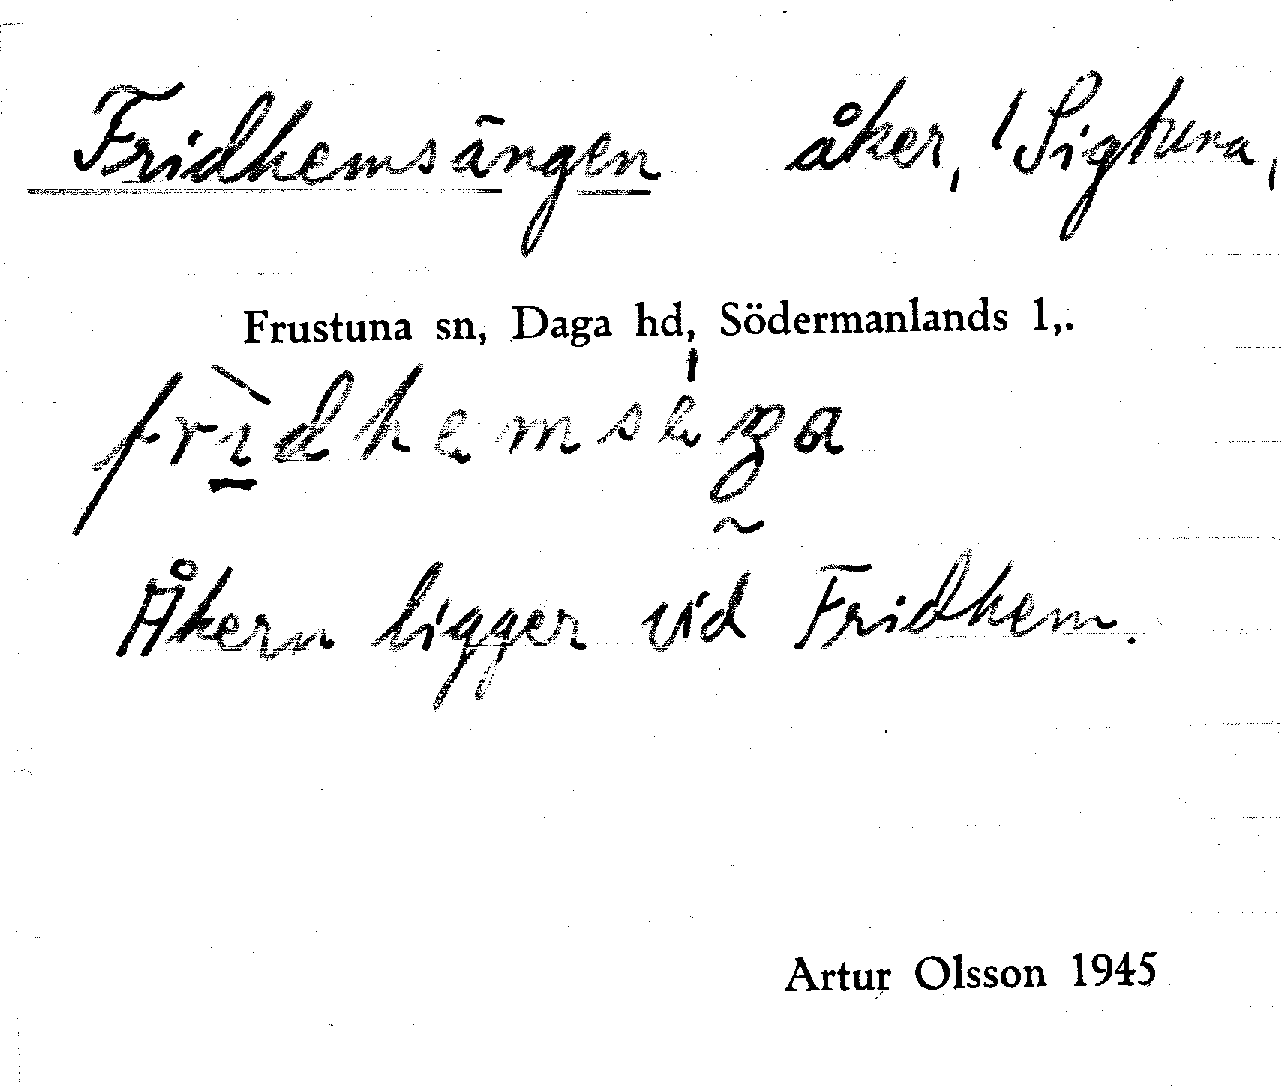 Fridhemsängen åker, / Sigtuna,
Frustuna sn, Daga hd, Södermanlands l,.
Åkern ligger vid Fridhem.
Artur Olsson 1945